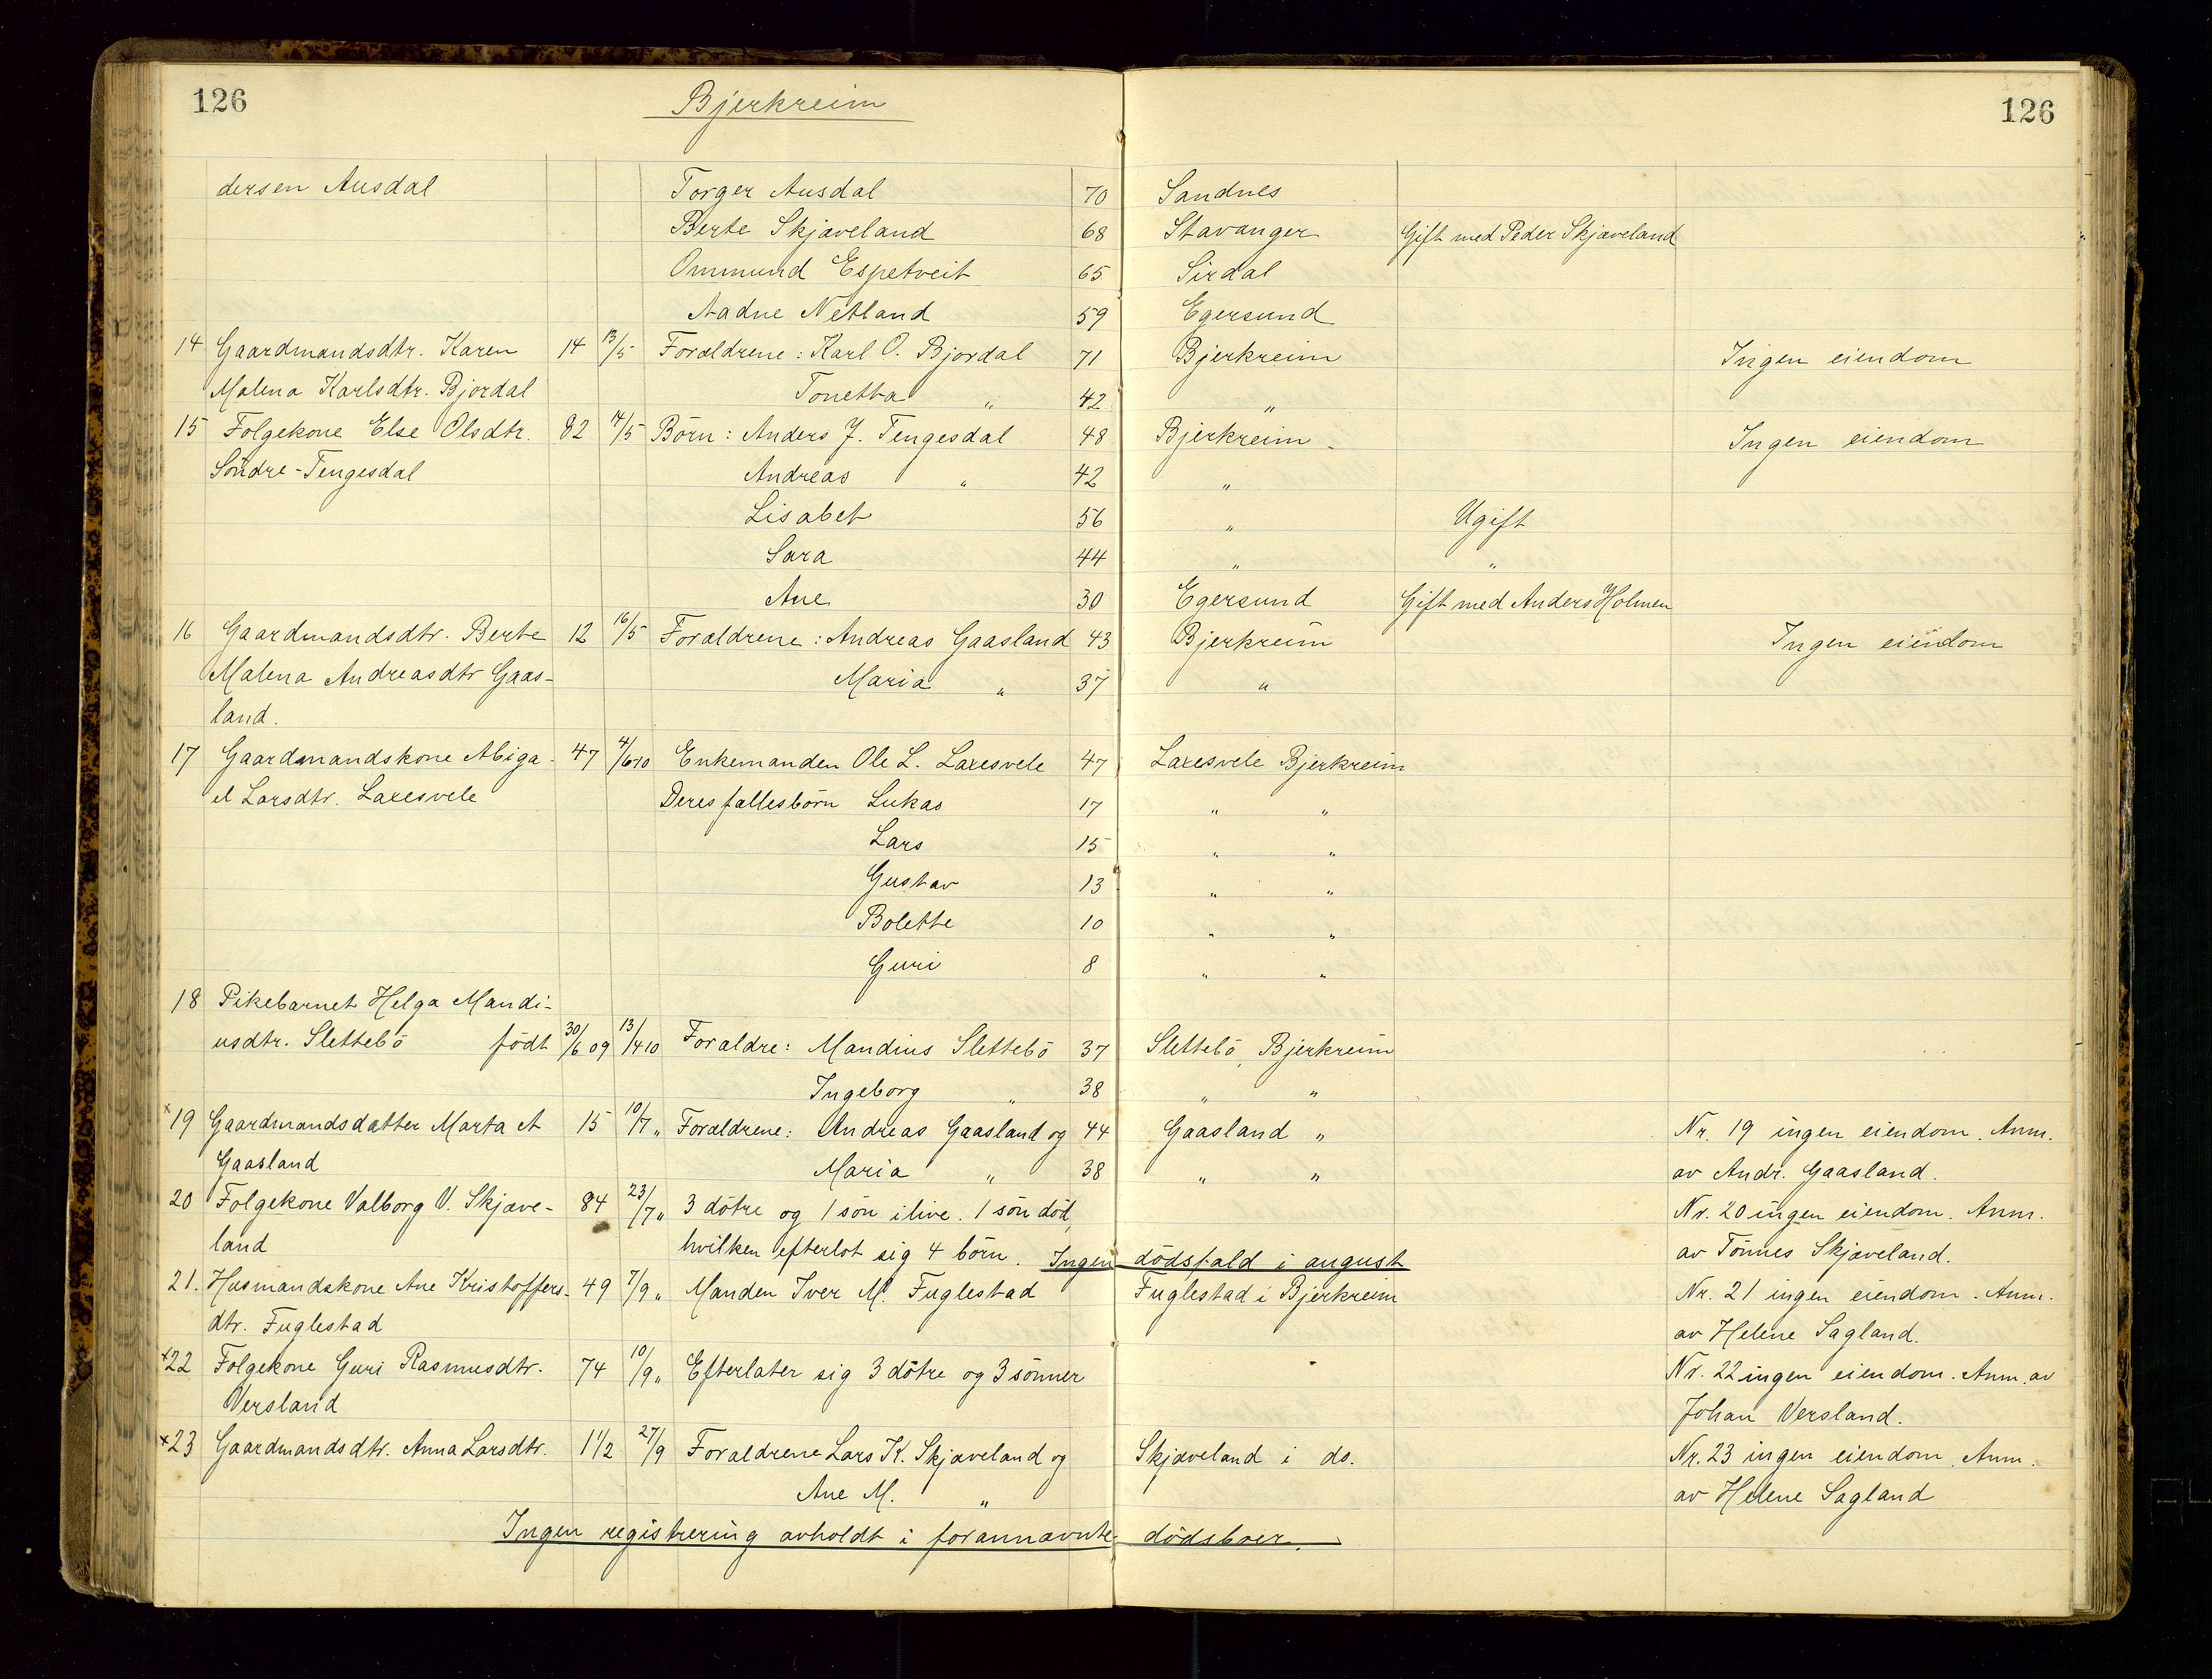 126 Bjerkreim 126
dersen Ausdal Torger Ausdal 70 Sandnes
Berte Skjæveland 68 Stavanger Gift med Peder Skjæveland
Ommund Espetveit 65 Sirdal
Aadne Netland 59 Egersund
14 Gaardmandsdtr. Karen 14 13/5 Forældrene: Karl O. Bjordal 71 Bjerkreim Ingen eiendom
Malena Karlsdtr. Bjordal Tonetta " 42 "
15 Folgekone Else Olsdtr. 82 14/5 Börn: Anders J. Tengesdal 48 Bjerkreim - Ingen eiendom
Söndre-Tengesdal Andreas " 42 "
Lisabet 56 " Ugift
Sara 44 " "
Ane 30 Egersund Gift med Anders Holmen
16 Gaardmandsdtr. Berte 12 16/5 Forældrene: Andreas Gaasland 43 Bjerkreim Ingen eiendom
Malena Andreasdtr Gaas- Maria " 37 "
land.
17 Gaardmandskone Abiga- 47 4/6 10 Enkemanden Ole L. Laxesvele 47 Laxesvele Bjerkreim
el Larsdtr. Laxesvele Deres fællesbörn Lukas 17 " "
Lars 15 " "
Gustav 13 " "
Bolette 10 " "
Guri 8 " "
18 Pikebarnet Helga Mandi-
usdtr. Slettebö födt 30/6 09 13/4 10 Forældre: Mandius Slettebö 37 Slettebö, Bjerkreim
Ingeborg " 38 " "
x19 Gaardmandsdatter Marta A 15 10/7 " Forældrene: Andreas Gaasland og 44 Gaasland " Nr. 19 ingen eiendom. Anm.
Gaasland Maria " 38 " " av Andr. Gaasland.
20 Folgekone Valborg V. Skjæve- 84 23/7 " 3 dötre og 1 sön ilive. 1 sön död, Nr. 20 ingen eiendom. Anm.
land hvilken efterlot sig 4 börn. Ingen dödsfald i august av Tönnes Skjæveland.
21. Husmandskone Ane Kristoffers- 49 7/9 " Manden Iver M. Fuglestad Fuglestad i Bjerkreim Nr. 21 ingen eiendom. Anm.
dtr. Fuglestad av Helene Sagland.
x22 Folgekone Guri Rasmusdtr. 74 10/9 " Efterlater sig 3 dötre og 3 sönner Nr. 22 ingen eiendom. Anm. av
Versland Johan Versland.
x23 Gaardmandsdtr. Anna Larsdtr. 1 1/2 27/9 Forældrene Lars K. Skjæveland og Skjæveland i ds. Nr. 23 ingen eiendom. Anm.
Ane M. " av Helene Sagland
Ingen registrering avholdt i forannævnte dödsboer.